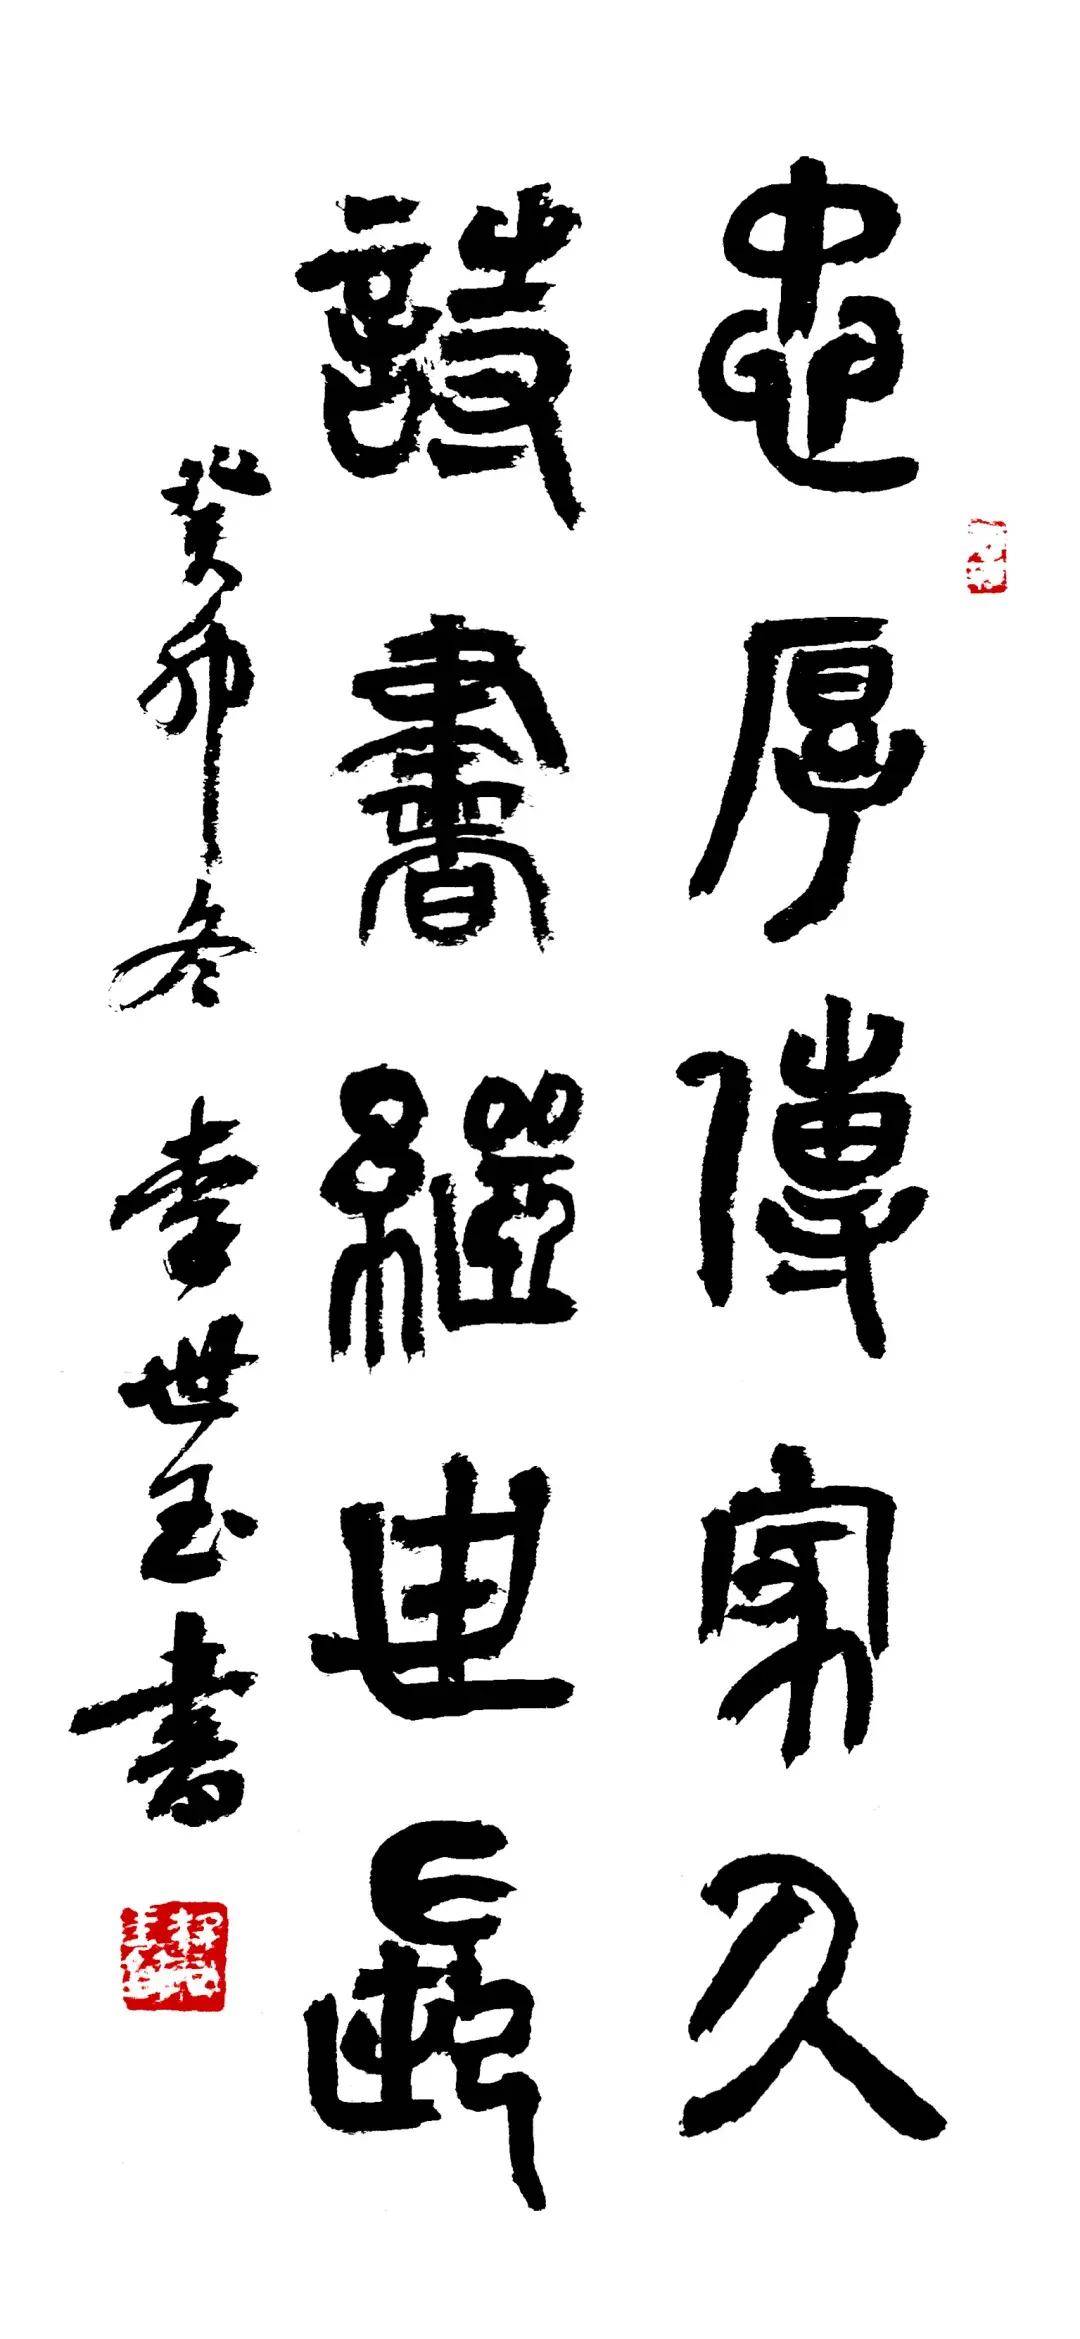 忠厚傳家久
詩書繼世長
癸卯冬 李世玉書